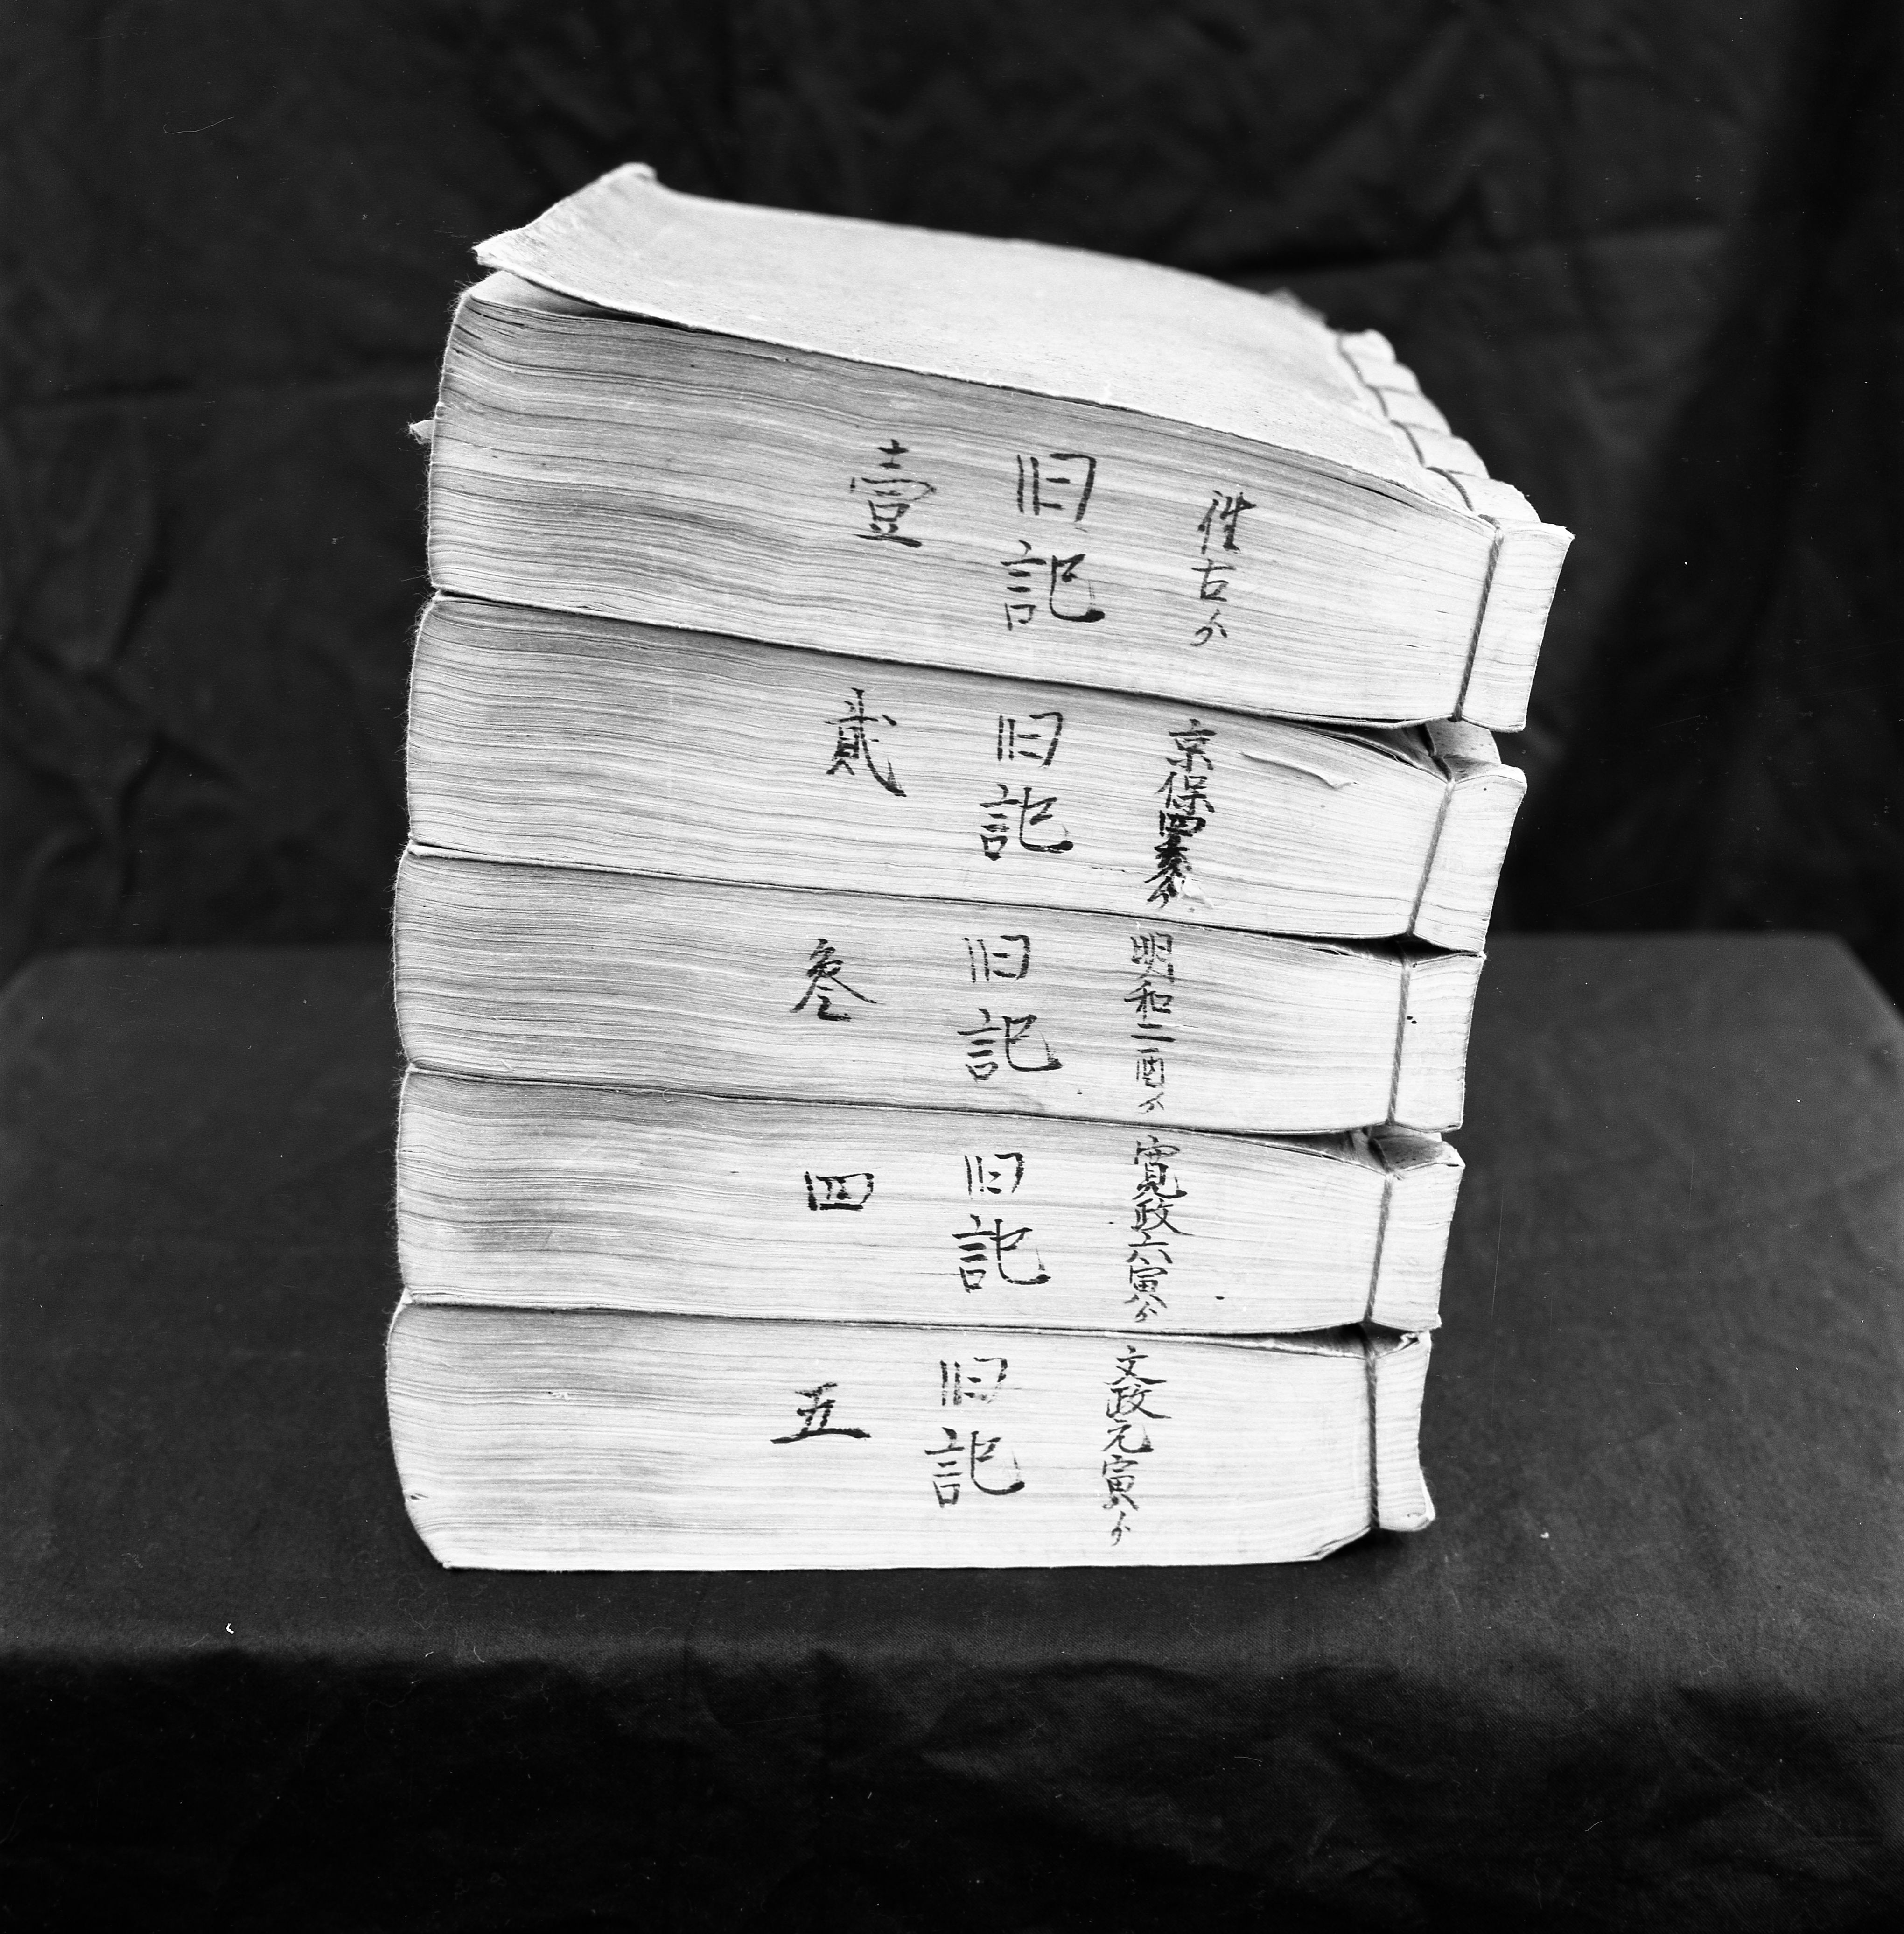 往古ゟ
旧記
壹
享保四
旧記
貳
明和二酉ゟ
旧記
叁
寛政六寅ゟ
旧記
四
文政元寅ゟ
旧記
五